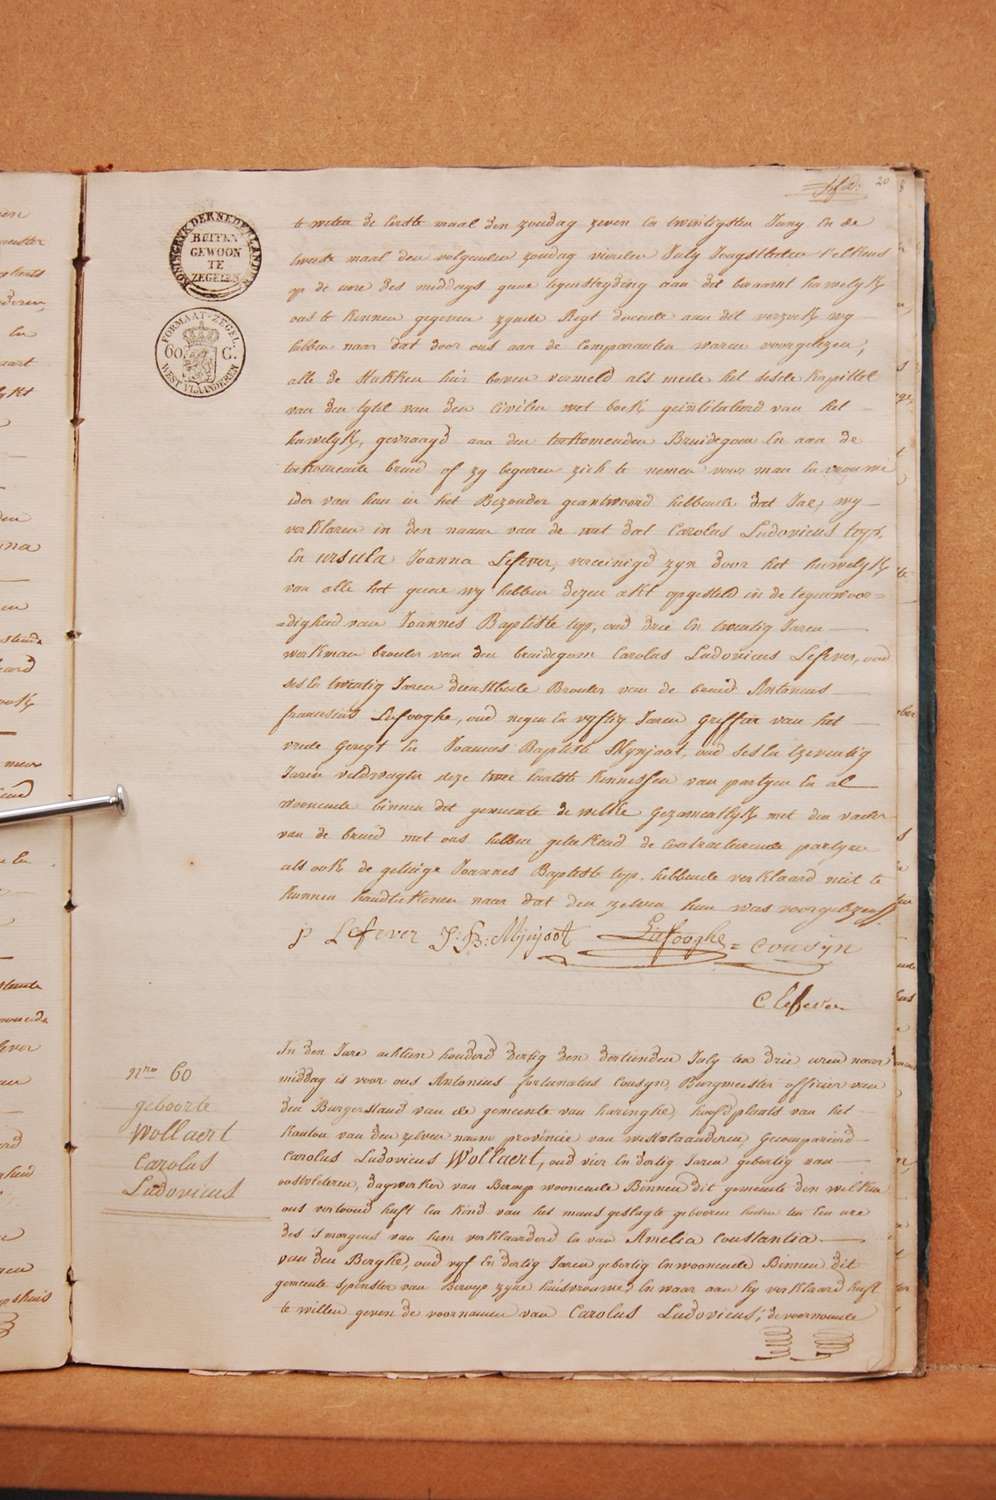 20
KONINGRYK DER NEDERLANDEN
BUITEN
GEWOON
TE
ZEGELEN
FORMAAT-ZEGEL
60 C:
WEST-VLAANDEREN
te weten de eerste maal den zondag zeven en twintigsten Juny en de
tweede maal den volgenden zondag vierden July Jongstleden telkens
op de ure des middags geene tegenstryding aan dit huwelyk
ons te kennen gegeven zynde Regt doende aan dit verzoek wy
hebben naer dat door ons aan de Comparanten waren voorgelezen,
alle de Stukken hier boven vermeld als mede het sesde Kapittel
van den tytel van den Civilen wet boek geintituleerd van het
huwelyk, gevraagd aan den toekomenden Bruidegom En aan de
toekomende bruid of zy begeeren zich te nemen voor man en vrouw
ider van hun in het Bezonder geantwoord hebbende dat Jae, wy
verklaren in den naam van de wet dat Carolus Ludovicus
En ursula Joanna Lefever, vereenigd zyn door het huwelyk
van alle het geene wy hebben dezen akt opgesteld in de tegenwoor=
=digheid van Joannes Baptiste oud drie En twintig Jaren
werkman broeder van den bruidegom Carolus Ludovicus Lefever, oud
ses En twintig Jaren dienstbode Broeder van de bruid Antonius
franciscus Lafooghe, oud negen En vyftig Jaren Griffier van het
vrede Geregt En Joannes Baptiste Mynjoot, oud ses En tzeventig
Jaren veldwagter deze twee laatste kennissen van partyen En al
woonende binnen dit gemeente de welke Gezamentlyk met den vader
van de bruid met ons hebben geteekend de Contracteerende partyen
als ook de getuige Joannes Baptiste hebbende verklaard niet te
kunnen handteekenen naer dat den zelven hun was voorgelezen
P Lefever J: B: Mynjoot Lafooghe = Cousyn
C Lefever
Nro 60
geboorte
Wollaert
Carolus
Ludovicus
In den Jare achtien honderd dertig den dertienden July ten drie uren naar
middag is voor ons Antonius fortunatus Cousyn, Burgmeester officier van
den Burgerstand van de gemeente van haringhe, hoofdplaats van het
kanton van den zelven naam provincie van westvlaanderen, Gecompareerd
Carolus Ludovicus Wollaert, oud vier En dertig Jaren gebortig van
oostvleteren, dagwerker van Beroep woonende Binnen dit gemeente den welken
ons vertoond heeft Een kind van het mans geslagte geboren heden ten Een ure
des s'morgens van hem verklaarderd En van Amelia Constantia
van den Berghe, oud vyf En dertig Jaren gebortig En woonende Binnen dit
gemeente spinster van Beroep zyne huisvrouwe, En waar aan hy verklaard heeft
te willen geven de voornamen van Carolus Ludovicus; de voornoemde